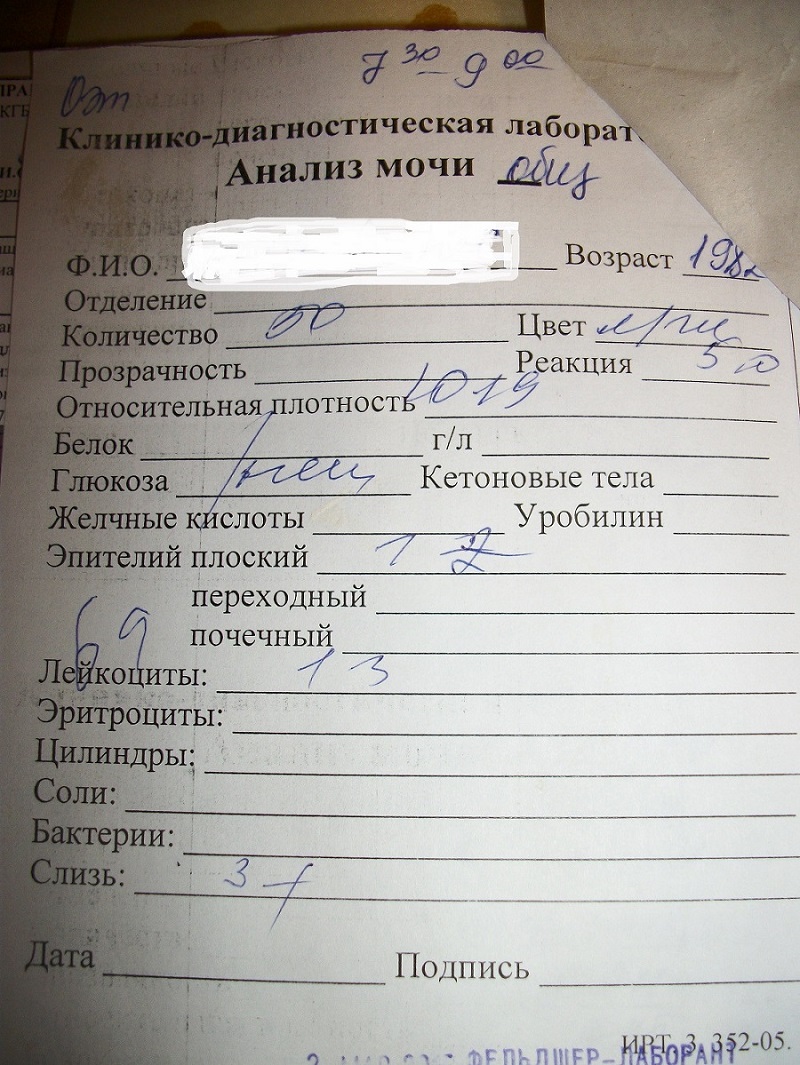 7 30 - 9 00
Клинико-диагностическая лаборат
Анализ мочи общ
Ф.И.О. Возраст 198
Отделение
Количество 50 Цвет
Прозрачность Реакция 5,0
Относительная плотность 1019
Белок г/л
Глюкоза Кетоновые тела
Желчные кислоты Уробилин
Эпителий плоский 1 2
переходный
69 почечный
Лейкоциты: 1 3
Эритроциты:
Цилиндры:
Соли:
Бактерии:
Слизь: 3 +
Дата Подпись
ИРТ. З. 352-05.
ФЕЛЬДШЕР-ЛАБОРАНТ